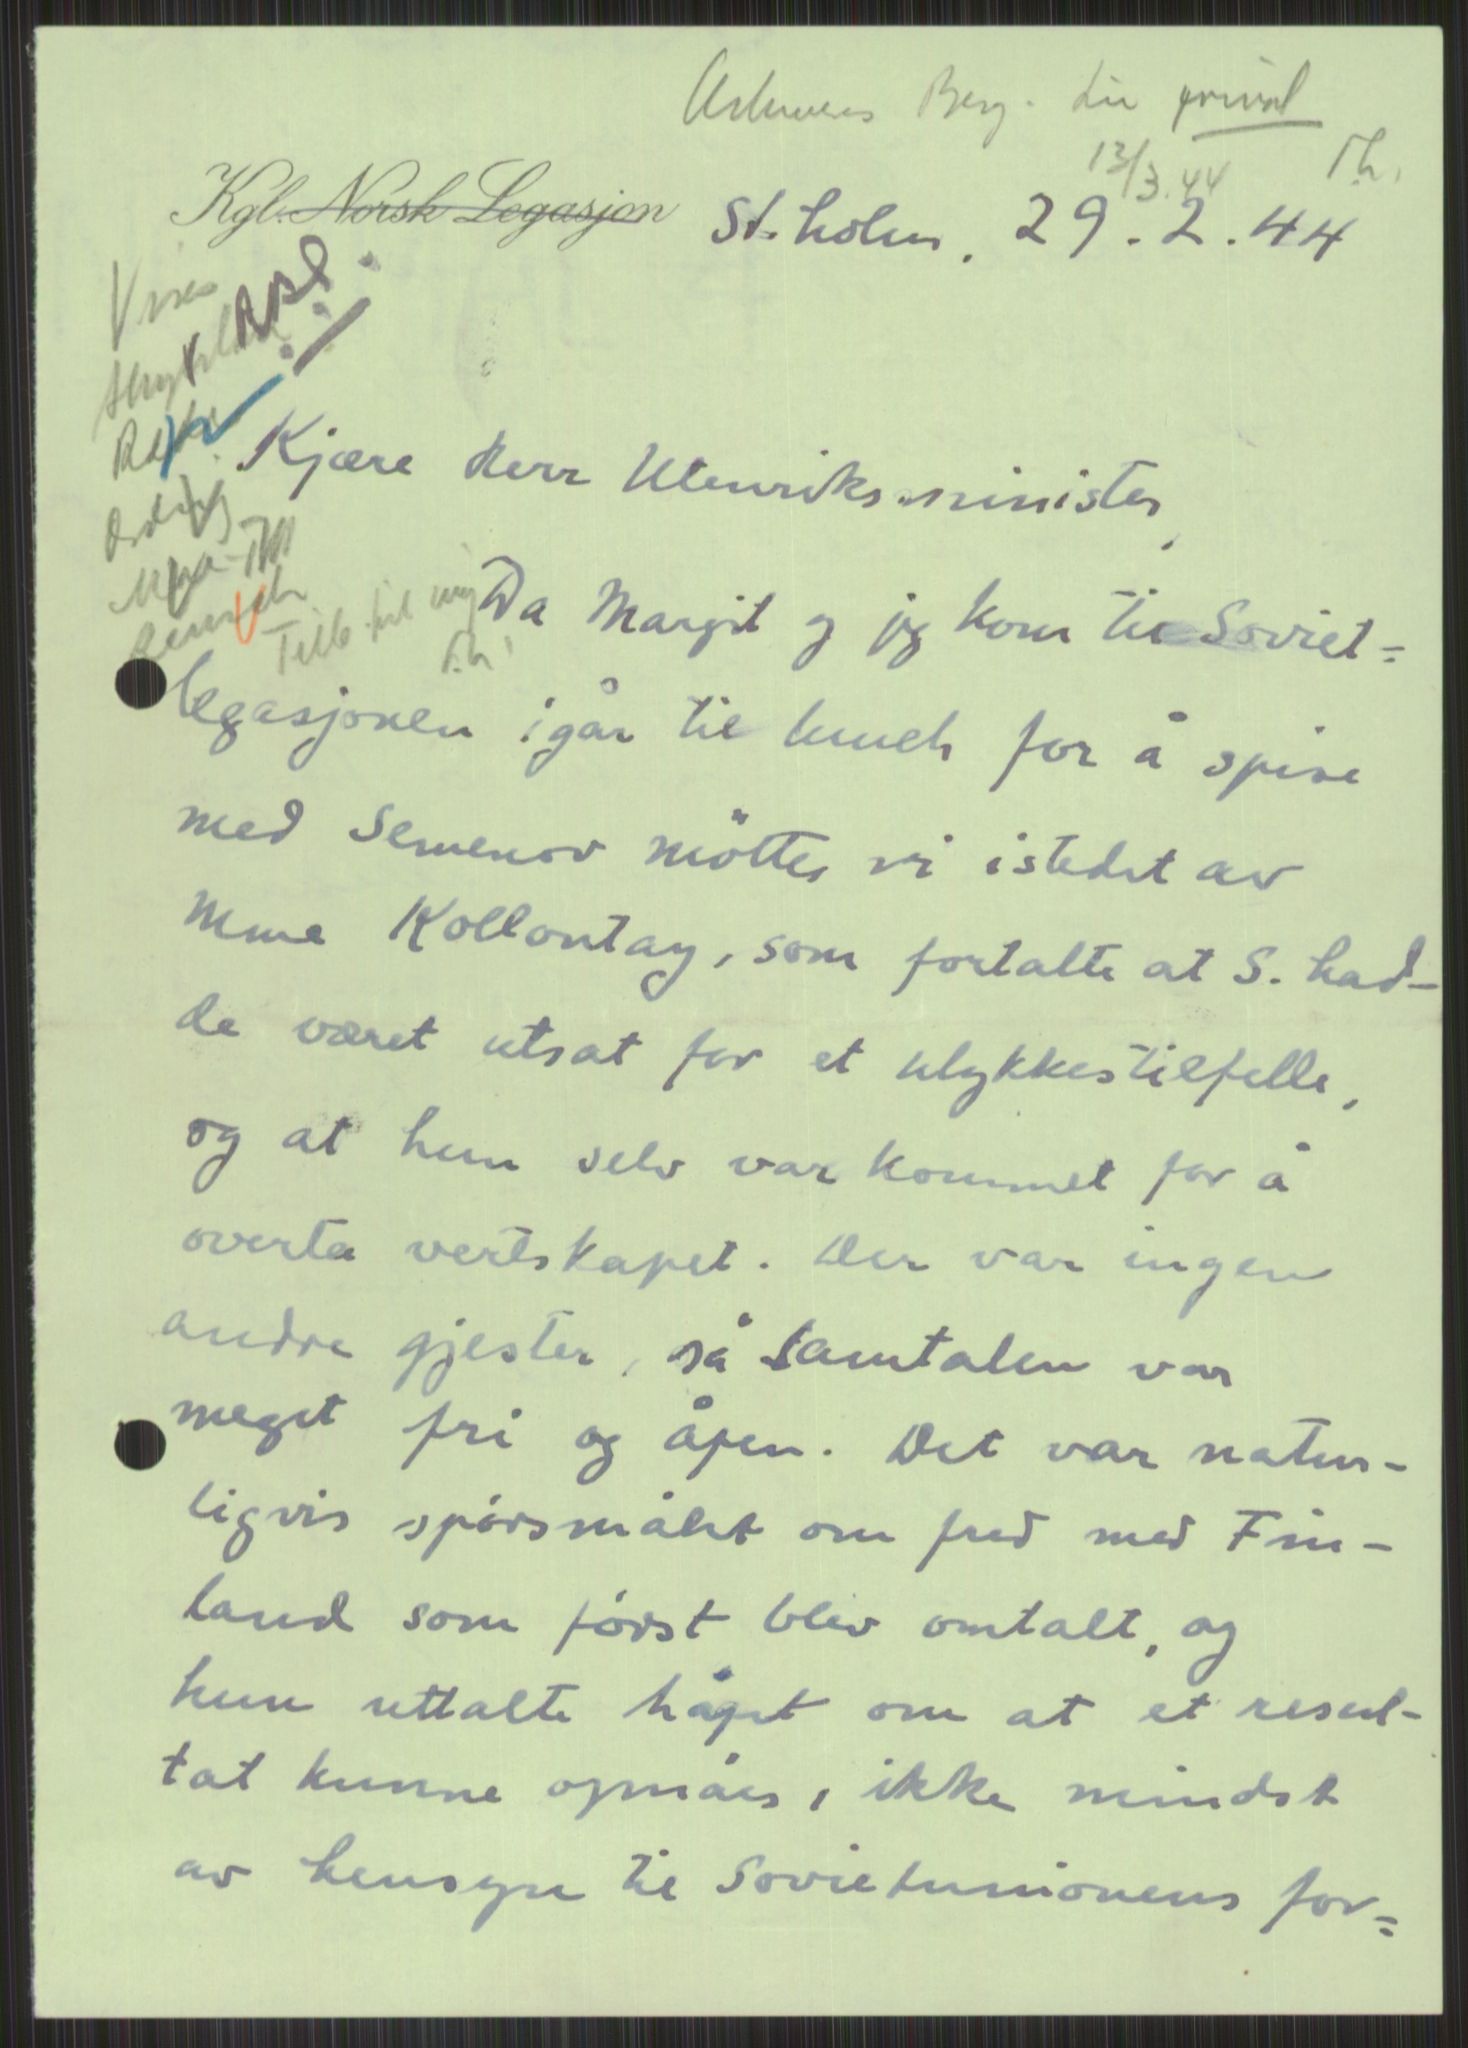 privat
13/3.44
T.L.
Kgl. Norsk Legasjon
St.holm, 29.2.44
Vises
Kjære Herr Utenriksminister,
Tilb. til mig
T.L.
Da Margit og jeg kom til Soviet=
legasjonen igår til lunch for å spise
med Semenov möttes vi istedet av
Mme Kollontay, som fortalte at S. had-
de været utsat for et ulykkestilfelle,
og at hun selv var kommet for å
overta vertskapet. Der var ingen
andre gjester, så samtalen var
meget fri og åpen. Det var natur-
ligvis spórsmålet om fred med Fin-
land som fórst blev omtalt, og
hun uttalte håpet om at et resul-
tat kunne opnåes, ikke mindst
av hensyn til Sovietunionens for=